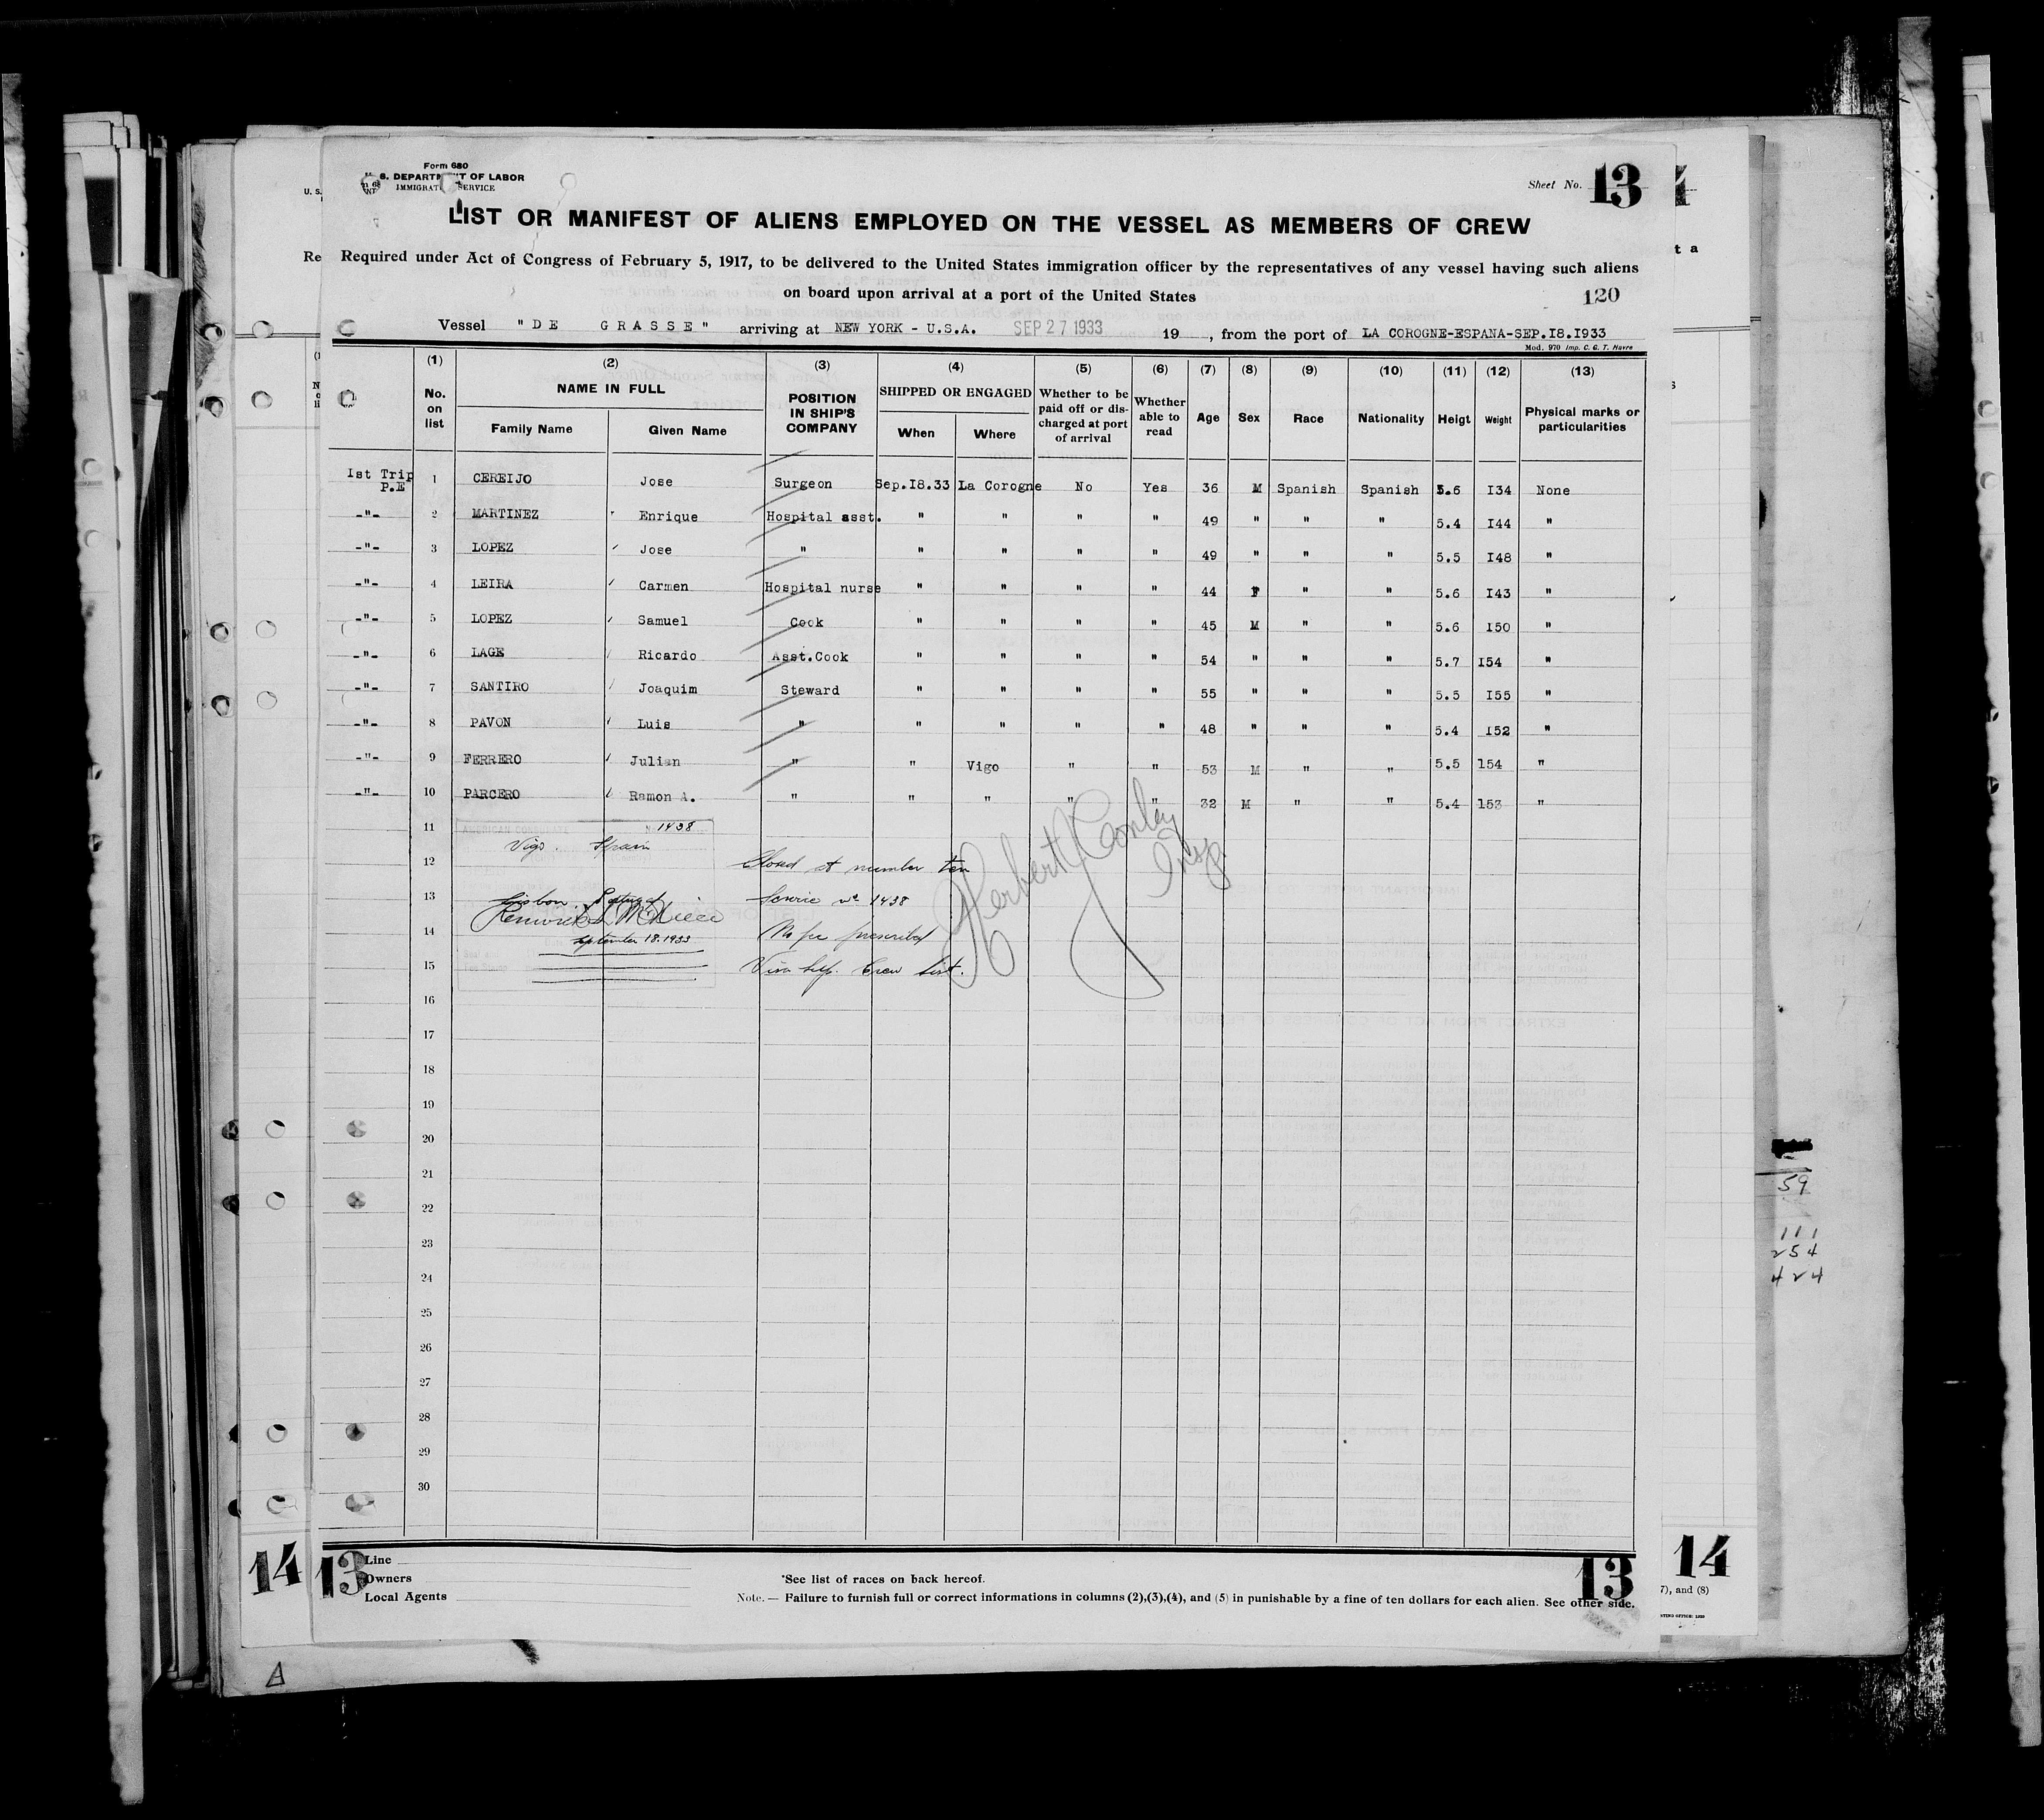 Form 680
U. S. DEPARTMENT OF LABOR
IMMIGRATION SERVICE
Sheet No. 13
LIST OR MANIFEST OF ALIENS EMPLOYED ON THE VESSEL AS MEMBERS OF CREW
Required under Act of Congress of February 5, 1917, to be delivered to the United States immigration officer by the representatives of any vessel having such aliens
on board upon arrival at a port of the United States
120
Vessel "DE GRASSE" arriving at NEW YORK - U.S.A. SEP 27 1933 19 , from the port of LA COROGNE-ESPANA-SEP.I8.I933
Mod. 970 Imp. C. G. T. Havre
(1) (2) (3) (4) (5) (6) (7) (8) (9) (10) (11) (12) (13)
No. on list NAME IN FULL Family Name Given Name POSITION IN SHIP'S COMPANY SHIPPED OR ENGAGED When Where Whether to be paid off or discharged at port of arrival Whether able to read Age Sex Race Nationality Heigt Weight Physical marks or particularities
Ist Trip P.E 1 CEREIJO Jose Surgeon Sep.I8.33 La Corogne No Yes 36 M Spanish Spanish 5.6 I34 None
-"- 2 MARTINEZ Enrique Hospital asst. " " " " 49 " " " 5.4 I44 "
-"- 3 LOPEZ Jose " " " " " 49 " " " 5.5 I48 "
-"- 4 LEIRA Carmen Hospital nurse " " " " 44 F " " 5.6 I43 "
-"- 5 LOPEZ Samuel Cook " " " " 45 M " " 5.6 I50 "
-"- 6 LAGE Ricardo Asst.Cook " " " " 54 " " " 5.7 I54 "
-"- 7 SANTIRO Joaquim Steward " " " " 55 " " " 5.5 I55 "
-"- 8 PAVON Luis " " " " " 48 " " " 5.4 I52 "
-"- 9 FERRERO Julian " " Vigo " " 53 M " " 5.5 154 "
-"- 10 PARCERO Ramon A. " " " " " 32 M " " 5.4 153 "
11
AMERICAN CONSULATE 1438
Vigo. Spain
12 Closed at number ten
Herbert J Conley Insp.
13 Lisbon. Portugal Service No 1438
14 September 18. 1933 No fee prescribed
15 Crew List.
16
17
18
19
20
21
22
23
24
25
26
27
28
29
30
59
111
254
424
14 13 Line
Owners
Local Agents
*See list of races on back hereof.
Note. — Failure to furnish full or correct informations in columns (2),(3),(4), and (5) in punishable by a fine of ten dollars for each alien. See other side.
13 14
7), and (8)